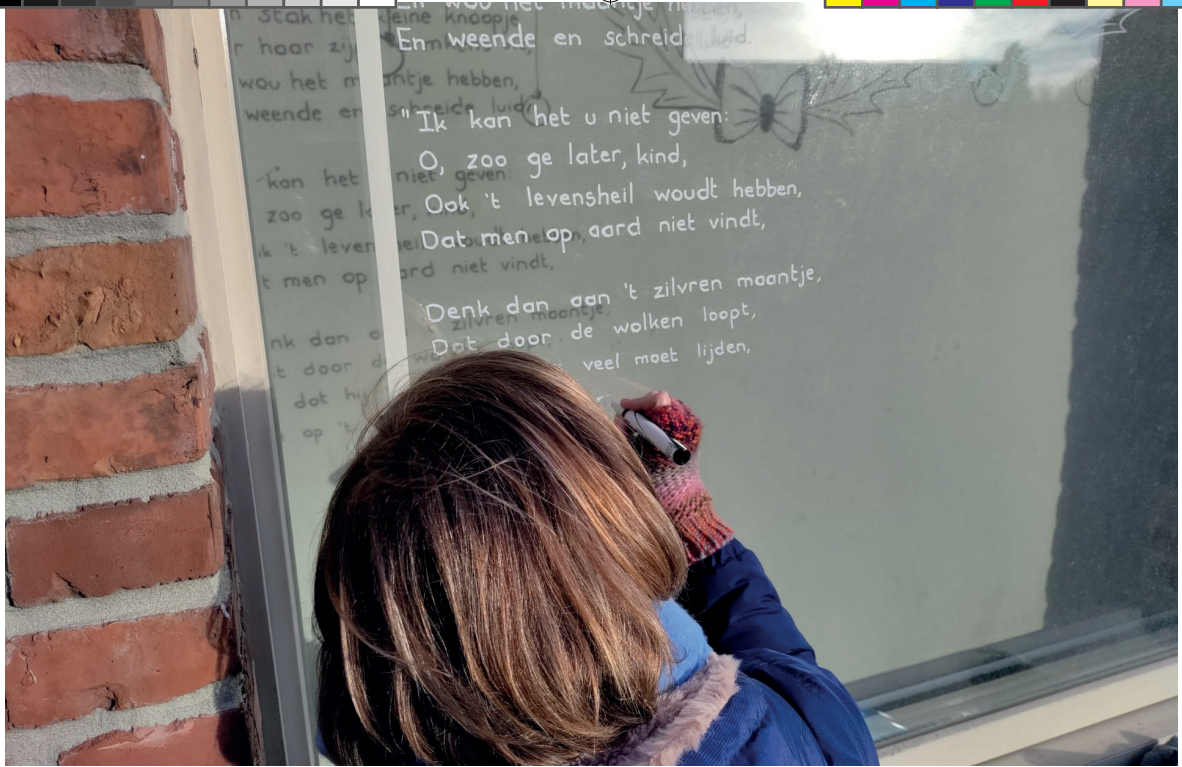 En wou het maantje hebben,
En weende en schreid luid.
"Ik kan het u niet geven:
O, zoo ge later, kind,
Ook 't levensheil woudt hebben,
Dat men op aard niet vindt,
Denk dan aan 't zilvren maantje,
Dat door de wolken loopt,
veel moet lijden,